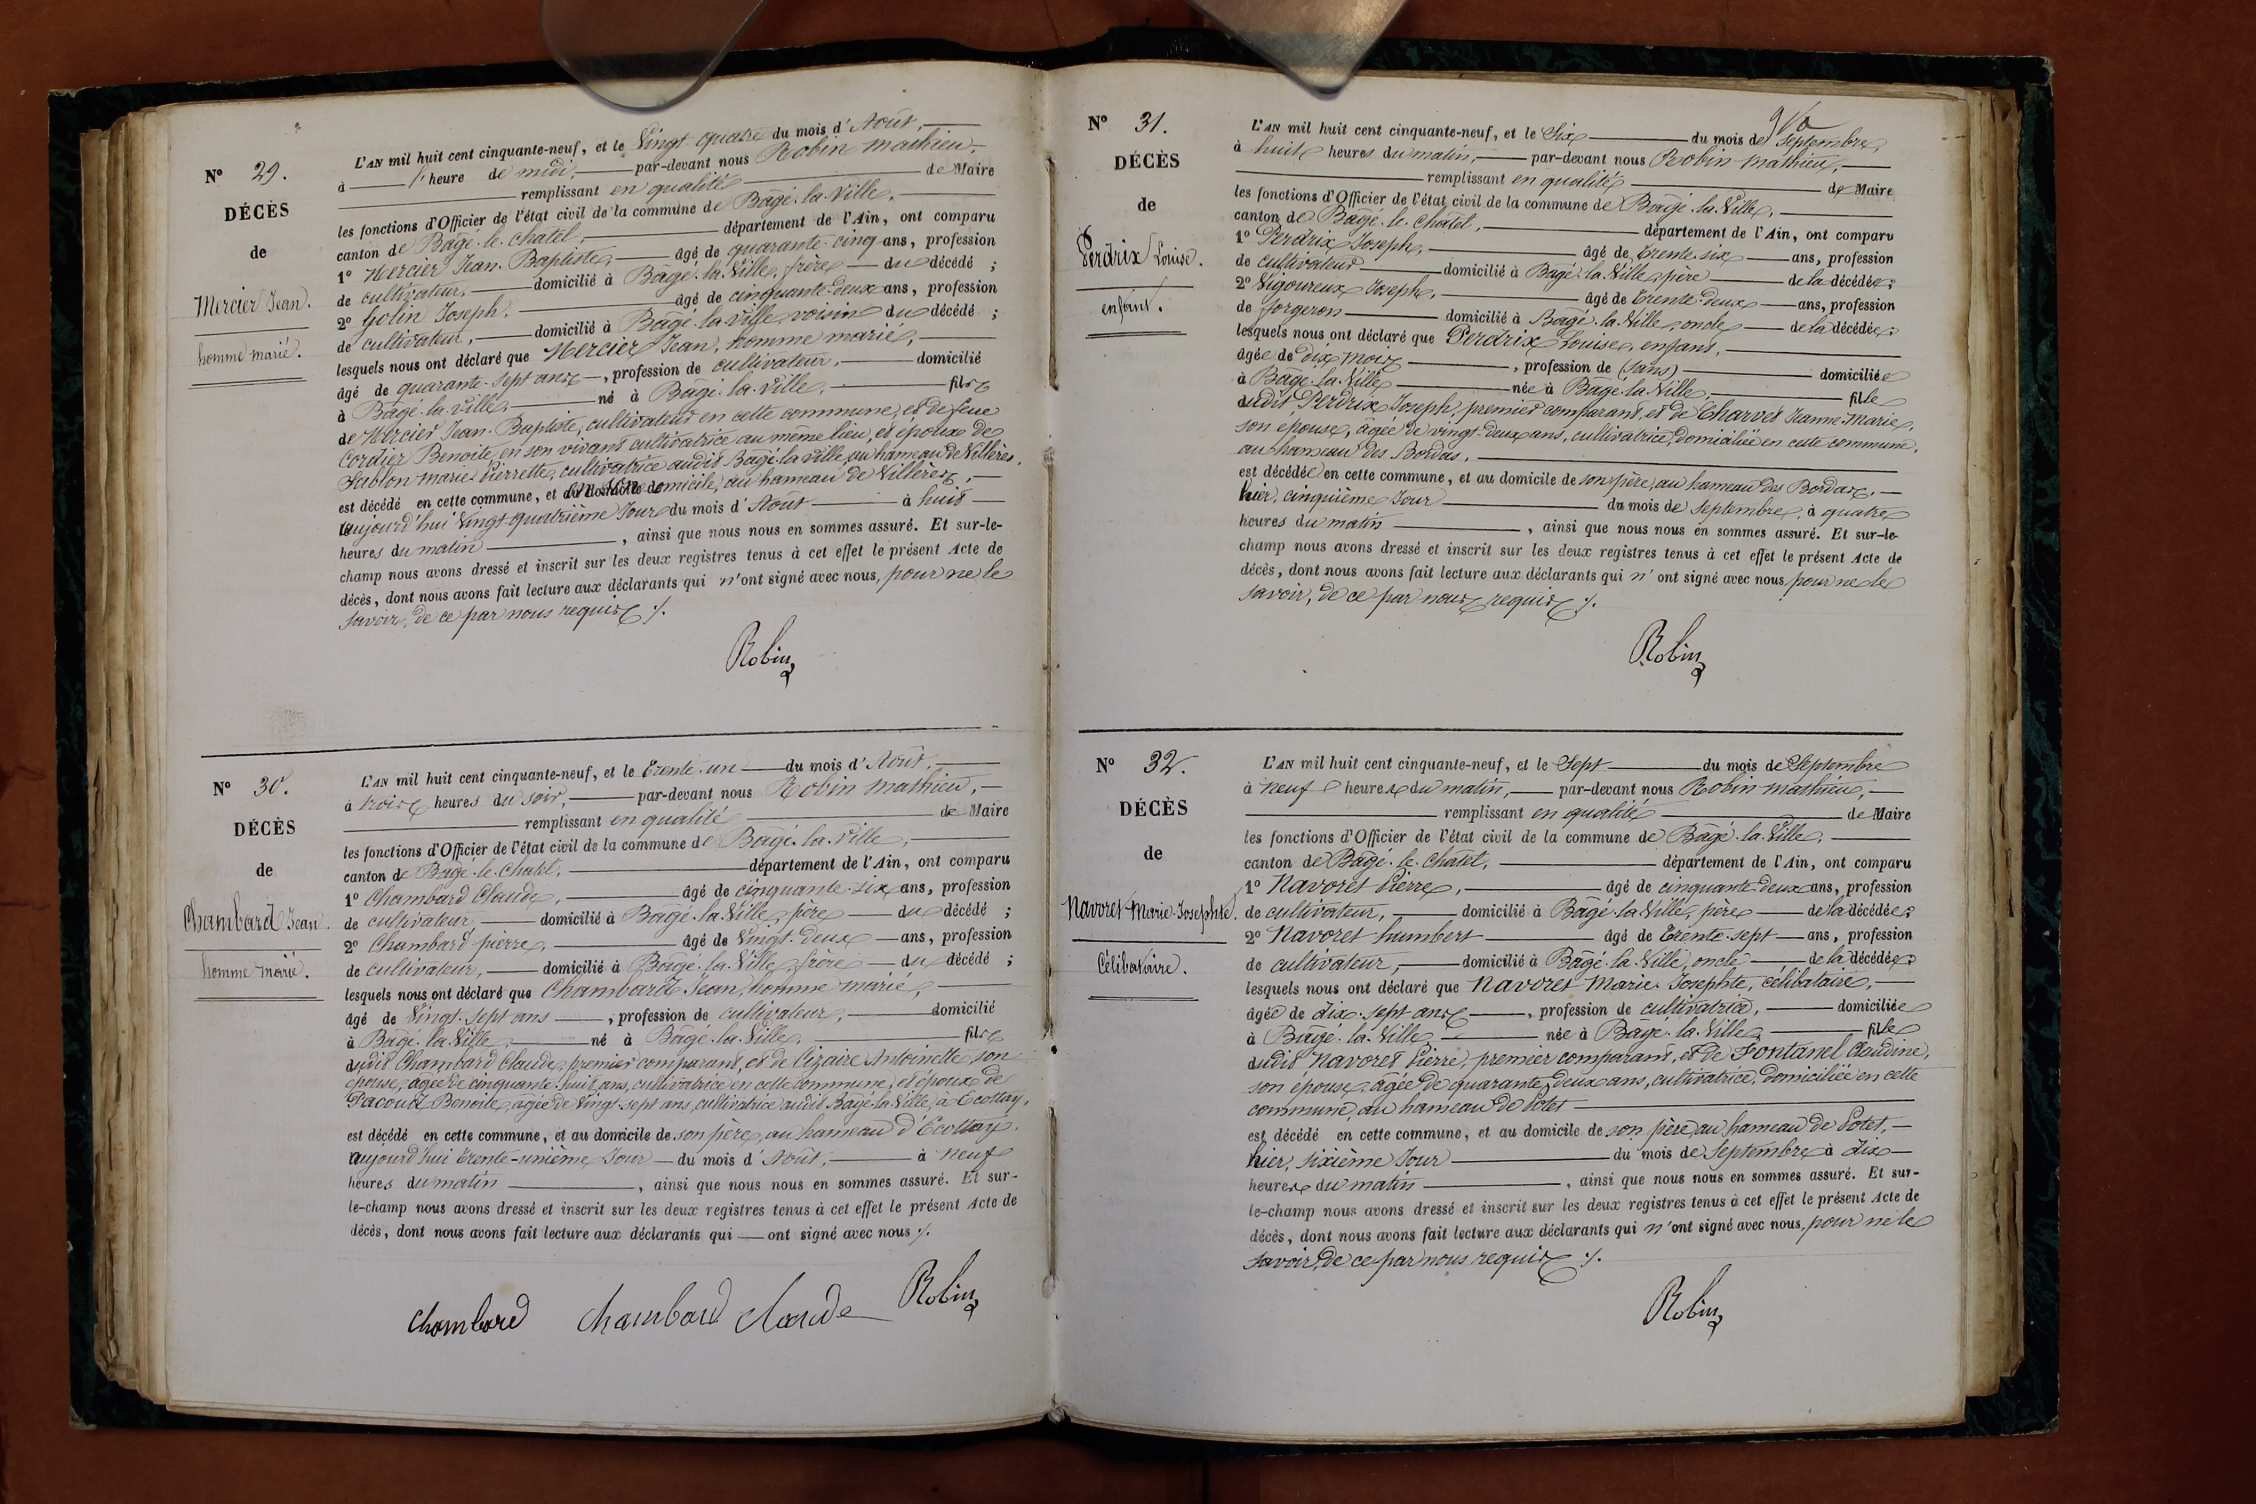 N° 29.
DÉCÈS
de
Mercier Jean.
homme marié.
L'AN mil huit cent cinquante-neuf, et le Vingt quatre du mois d'Août,
à l'heure de midi, par-devant nous Robin Mathieu,
remplissant en qualité de Maire
les fonctions d'Officier de l'état civil de la commune de Bâgé-la-Ville,
canton de Bâgé-le-Chatel, département de l'Ain, ont comparu
1° Mercier Jean-Baptiste, âgé de quarante-cinq ans, profession
de cultivateur, domicilié à Bâgé-la-Ville, frère du décédé ;
2° Golin Joseph, âgé de cinquante-deux ans, profession
de cultivateur, domicilié à Bâgé-la-Ville, voisin du décédé ;
lesquels nous ont déclaré que Mercier Jean, homme marié,
âgé de quarante-sept ans, profession de cultivateur, domicilié
à Bâgé-la-Ville, né à Bâgé-la-Ville, fils
de Mercier Jean-Baptiste, cultivateur en cette commune, et de feue
Cordier Benoite, en son vivant cultivatrice au même lieu, et époux de
Sablon Marie Pierrette, cultivatrice audit Bâgé-la-Ville, au hameau de Villères.
est décédé en cette commune, et en son domicile, au hameau de Villères,
aujourd'hui Vingt-quatrième Jour du mois d'Août à huit
heures du matin , ainsi que nous nous en sommes assuré. Et sur-le-
champ nous avons dressé et inscrit sur les deux registres tenus à cet effet le présent Acte de
décès, dont nous avons fait lecture aux déclarants qui n'ont signé avec nous, pour ne le
savoir, de ce par nous requis ./.
Robin
N° 30.
DÉCÈS
de
Chambard Jean.
homme marié.
L'AN mil huit cent cinquante-neuf, et le Trente-un du mois d'Août,
à trois heures du soir, par-devant nous Robin Mathieu,
remplissant en qualité de Maire
les fonctions d'Officier de l'état civil de la commune de Bâgé-la-Ville,
canton de Bâgé-le-Chatel, département de l'Ain, ont comparu
1° Chambard Claude, âgé de cinquante-six ans, profession
de cultivateur, domicilié à Bâgé-la-Ville, père du décédé ;
2° Chambard pierre, âgé de Vingt-deux ans, profession
de cultivateur, domicilié à Bâgé-la-Ville, frère du décédé ;
lesquels nous ont déclaré que Chambard Jean, homme marié,
âgé de Vingt-sept ans, profession de cultivateur, domicilié
à Bâgé-la-Ville, né à Bâgé-la-Ville, fils
dudit Chambard Claude, premier comparant, et de Cizaire Antoinette son
épouse, âgée de cinquante-huit ans, cultivatrice en cette commune, et époux de
Pacoud Benoite, âgée de Vingt-sept ans, cultivatrice audit Bâgé-la-Ville, à Ecottay.
est décédé en cette commune, et au domicile de son père, au hameau d'Ecottay.
aujourd'hui trente-unième Jour du mois d'Août, à neuf
heures du matin , ainsi que nous nous en sommes assuré. Et sur-
le-champ nous avons dressé et inscrit sur les deux registres tenus à cet effet le présent Acte de
décès, dont nous avons fait lecture aux déclarants qui ont signé avec nous ./.
Chambard Chambard Claude Robin
N° 31.
DÉCÈS
de
Perdrix Louise.
enfant.
L'AN mil huit cent cinquante-neuf, et le Six du mois de Septembre,
à huit heures du matin, par-devant nous Robin Mathieu,
remplissant en qualité de Maire
les fonctions d'Officier de l'état civil de la commune de Bâgé-la-Ville,
canton de Bâgé-le-Châtel, département de l'Ain, ont comparu
1° Perdrix Joseph, âgé de trente-six ans, profession
de cultivateur domicilié à Bâgé-la-Ville, père de la décédée ;
2° Vigoureux Joseph, âgé de trente-deux ans, profession
de forgeron domicilié à Bâgé-la-Ville, oncle de la décédée ;
lesquels nous ont déclaré que Perdrix Louise, enfant,
âgée de dix mois , profession de (sans) domiciliée
à Bâgé-la-Ville née à Bâgé-la-Ville, fille
dudit Perdrix Joseph, premier comparant, et de Charvet Jeanne-Marie,
son épouse, âgée de vingt-deux ans, cultivatrice, domiciliée en cette commune,
au hameau des Bordas,
est décédée en cette commune, et au domicile de son père, au hameau des Bordas,
hier, cinquième Jour du mois de Septembre, à quatre
heures du matin , ainsi que nous nous en sommes assuré. Et sur-le-
champ nous avons dressé et inscrit sur les deux registres tenus à cet effet le présent Acte de
décès, dont nous avons fait lecture aux déclarants qui n'ont signé avec nous, pour ne le
savoir, de ce par nous requis ./.
Robin
N° 32.
DÉCÈS
de
Navoret Marie-Josephte.
Célibataire.
L'AN mil huit cent cinquante-neuf, et le Sept du mois de Septembre
à neuf heures du matin, par-devant nous Robin Mathieu,
remplissant en qualité de Maire
les fonctions d'Officier de l'état civil de la commune de Bâgé-la-Ville,
canton de Bâgé-le-Châtel, département de l'Ain, ont comparu
1° Navoret Pierre, âgé de cinquante-deux ans, profession
de cultivateur, domicilié à Bâgé-la-Ville, père de la décédée ;
2° Navoret humbert âgé de trente-sept ans, profession
de cultivateur, domicilié à Bâgé-la-Ville, oncle de la décédée ;
lesquels nous ont déclaré que Navoret Marie-Josephte, célibataire,
âgée de dix-sept ans , profession de cultivatrice, domiciliée
à Bâgé-la-Ville, née à Bâgé-la-Ville, fille
dudit Navoret Pierre, premier comparant, et de Fontanel Claudine,
son épouse, âgée de quarante-deux ans, cultivatrice, domiciliée en cette
commune, au hameau de Potet
est décédé en cette commune, et au domicile de son père, au hameau de Potet,
hier, sixième Jour du mois de Septembre à dix
heures du matin , ainsi que nous nous en sommes assuré. Et sur-
le-champ nous avons dressé et inscrit sur les deux registres tenus à cet effet le présent Acte de
décès, dont nous avons fait lecture aux déclarants qui n'ont signé avec nous, pour ne le
savoir, de ce par nous requis ./.
Robin